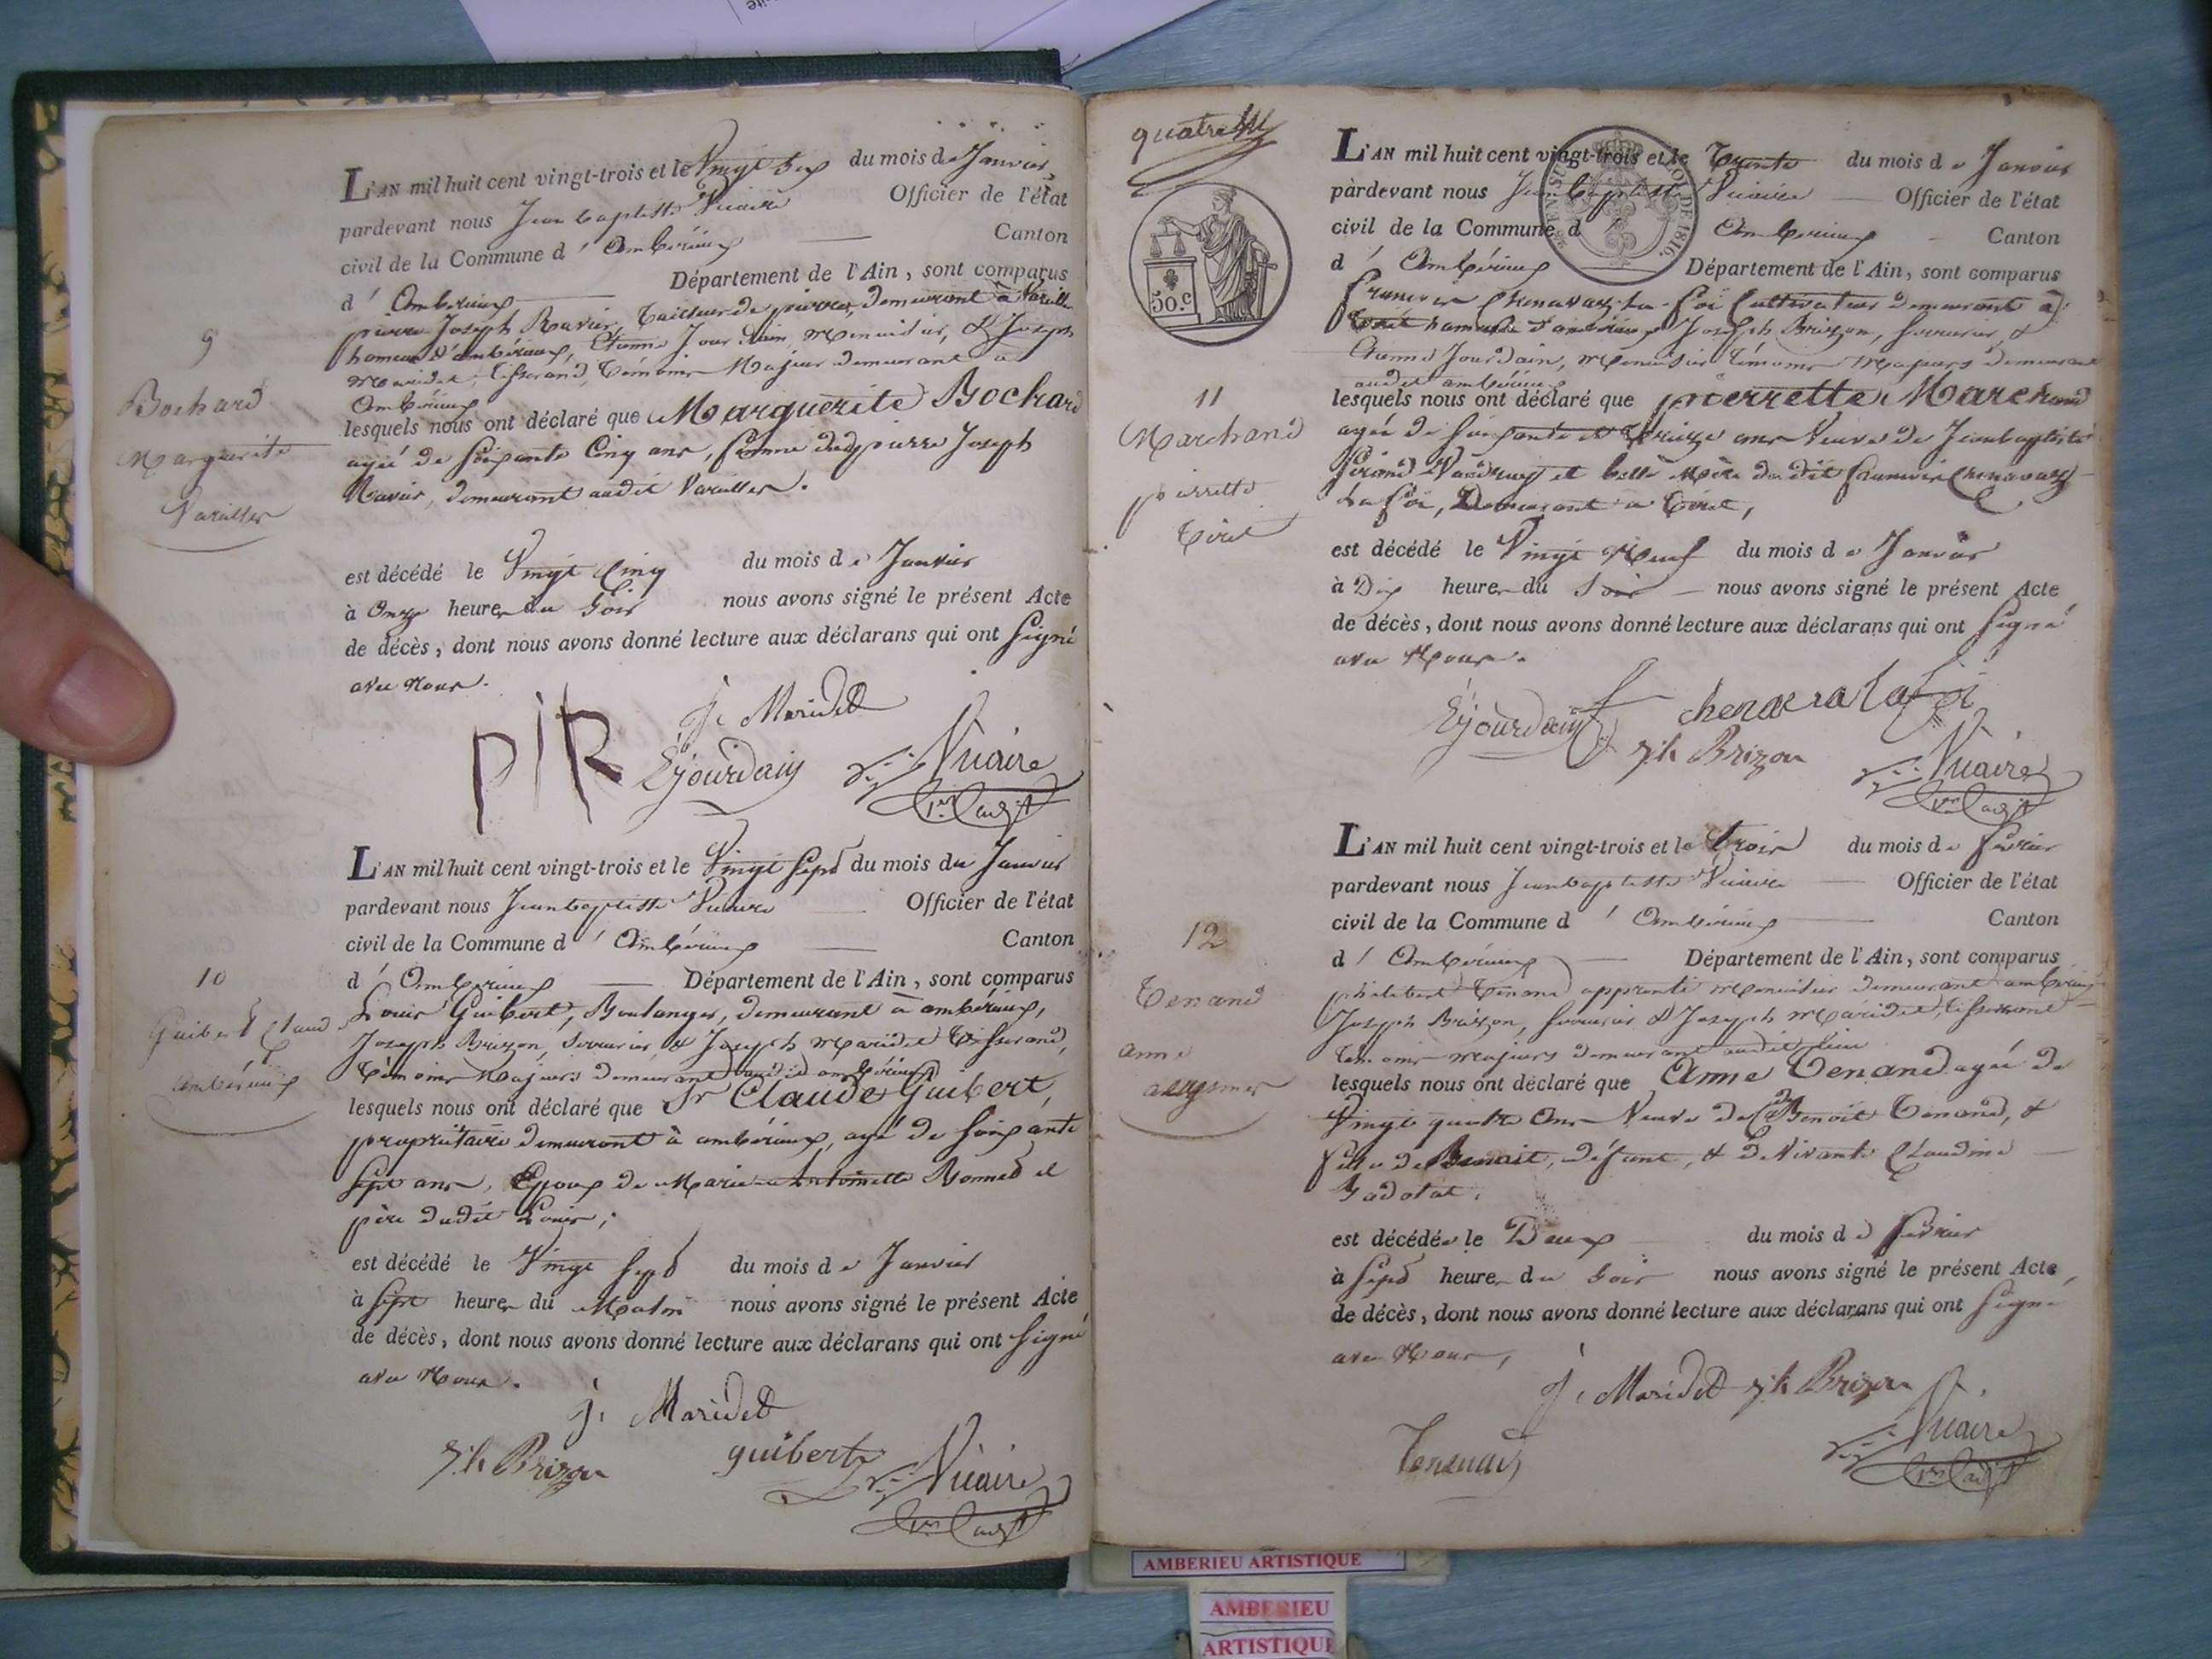 L'AN mil huit cent vingt-trois et le Vingt Six du mois de Janvier
pardevant nous Jean baptiste Vicaire Officier de l'état
civil de la Commune d' Ambérieux Canton
d' Ambérieux Département de l'Ain, sont comparus
pierre Joseph Ravier, tailleur de pierres, demeurant à Vareilles
hameau d'ambérieux, Etienne Jourdain, Menuisier, & Joseph
Maridet, tisserand, témoins Majeurs demeurant à
Ambérieux
9
Bochard
Marguerite
Vareilles
lesquels nous ont déclaré que Marguerite Bochard
agée de soixante Cinq ans, femme dudit pierre Joseph
Ravier, demeurant audit Vareilles.
est décédé le Vingt Cinq du mois de Janvier
à Onze heures du Soir nous avons signé le présent Acte
de décès, dont nous avons donné lecture aux déclarans qui ont Signé
avec Nous.
PIR J. Maridet
E jourdain Vicaire
L'AN mil huit cent vingt-trois et le Vingt Sept du mois de Janvier
pardevant nous Jean baptiste Vicaire Officier de l'état
civil de la Commune d' Ambérieux Canton
d' Ambérieux Département de l'Ain, sont comparus
10
Guibert Claude
Ambérieux
Louis Guibert, Boulanger, demeurant à ambérieux,
Joseph Brizon, Serrurier, & Joseph Maridet Tisserand,
témoins Majeurs demeurant audit ambérieux
lesquels nous ont déclaré que Sr Claude Guibert,
propriétaire demeurant à ambérieux, agé de soixante
Sept ans, Epoux de Marie Antoinette Bonnet et
père dudit Louis;
est décédé le Vingt Sept du mois de Janvier
à Sept heures du Matin nous avons signé le présent Acte
de décès, dont nous avons donné lecture aux déclarans qui ont Signé
avec Nous.
j. Maridet
Jh Brizon guibert Vicaire
quatre
50.c
L'AN mil huit cent vingt-trois et le Trente du mois de Janvier
pardevant nous Jean baptiste Vicaire Officier de l'état
civil de la Commune d' Ambérieux Canton
d' Ambérieux Département de l'Ain, sont comparus
DE 1816.
françois Chenavaz-la-foi Cultivateur demeurant à
Tiret hameau d'ambérieux, Joseph Brizon, serrurier, &
Etienne Jourdain, Menuisier témoins Majeurs demeurant
audit ambérieux
11
Marchand
pierrette
Tiret
lesquels nous ont déclaré que pierrette Marchand
agée de soixante et treize ans Veuve de Jean baptiste
et belle Mère dudit francois Chenavaz
La foi, Demeurant à Tiret,
est décédé le Vingt Neuf du mois de Janvier
à Dix heures du Soir nous avons signé le présent Acte
de décès, dont nous avons donné lecture aux déclarans qui ont Signé
avec Nous.
E jourdain f chenavalafoi
Jh Brizon Vicaire
L'AN mil huit cent vingt-trois et le trois du mois de février
pardevant nous Jean baptiste Vicaire Officier de l'état
civil de la Commune d' Ambérieux Canton
d' Ambérieux Département de l'Ain, sont comparus
12
Tenand
anne
philibert Tenand apprenti Menuisier demeurant ambérieux
Joseph Brizon, serrurier & Joseph Maridet, tisserand
témoins Majeurs demeurant audit lieu
lesquels nous ont déclaré que Anne Tenand agée de
Vingt quatre Ans Veuve de Benoit Tenand, &
fille de Benoit, défunt, & de Vivante Claudine
Gadolat.
est décédée le Deux du mois de février
à Sept heures du Soir nous avons signé le présent Acte
de décès, dont nous avons donné lecture aux déclarans qui ont Signé
avec Nous,
J. Maridet Jh Brizon
Tenand Vicaire
AMBERIEU ARTISTIQUE
AMBERIEU
ARTISTIQUE